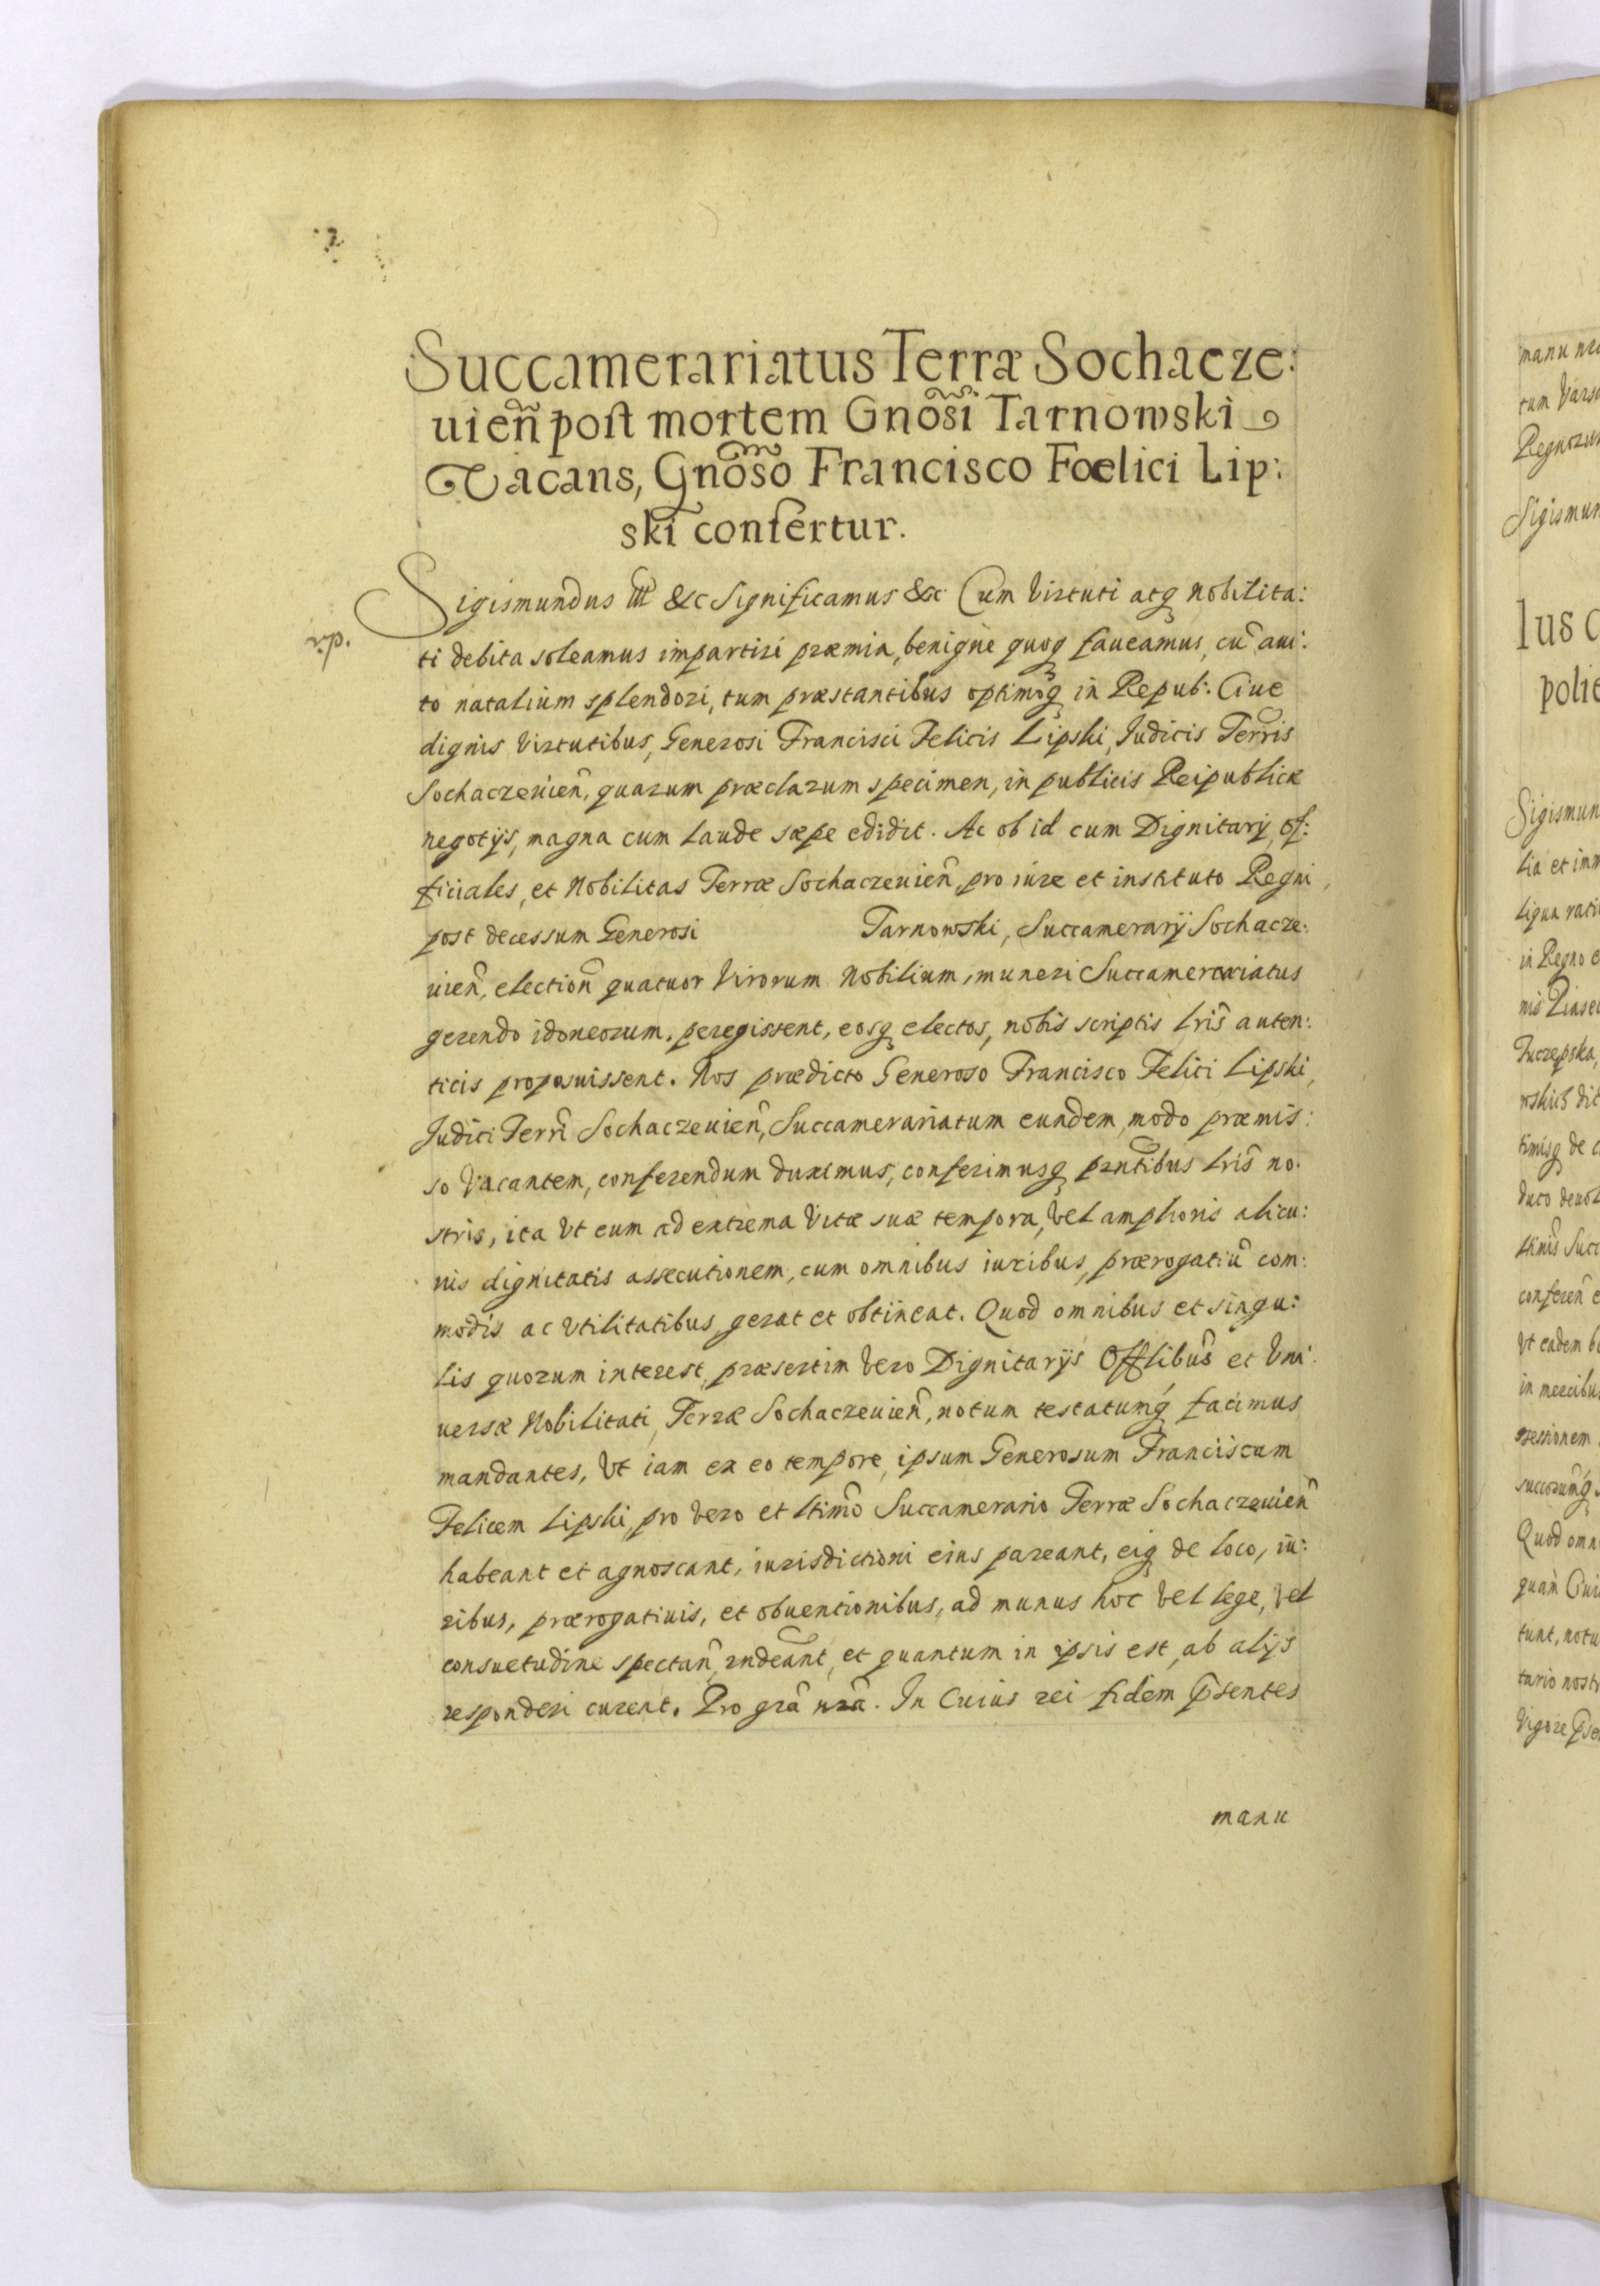 Succamerariatus Terræ Sochacze:
uieñ post mortem Gnõsi Tarnowski
Vacans, Gnõso Francisco Fœlici Lip:
ski confertur.
Sigismundus III &c Significamus &c Cum Virtuti atq Nobilita:
rp.
ti debita soleamus impartiri præmia, benigne quoq faueamus, cũ aui:
to natalium splendori, tum præstantibus optimoq in Repub: Ciue
dignis Virtutibus, Generosi Francisci Felicis Lipski, Judicis Terris
Sochaczeuieñ, quarum præclarum specimen, in publicis Reipublicæ
negotijs, magna cum laude sæpe edidit. Ac ob id cum Dignitarij, of:
ficiales, et Nobilitas Terræ Sochaczeuieñ, pro iure et instituto Regni,
post decessum Generosi Tarnowski, Succamerarij Sochacze:
uieñ, electioñ quatuor Virorum Nobilium, muneri Succamerariatus
gerendo idoneorum, peregissent, eosq electos, nobis scriptis lris̃ auten:
ticis proposuissent. Nos prædicto Generoso Francisco Felici Lipski,
Judici Terrĩ Sochaczeuieñ, Succamerariatum eundem, modo præmis:
so Vacantem, conferendum duximus, conferimusq prñtibus lris̃ no:
stris, ita Vt eum ad extrema Vitæ suæ tempora, Vel amplioris alicu:
ius dignitatis assecutionem, cum omnibus iuribus, prærogatiũ com:
modis ac Vtilitatibus gerat et obtineat. Quod omnibus et singu:
lis quorum interest, præsertim Vero Dignitarijs Offlibũs et Vni:
uersæ Nobilitati, Terræ Sochaczeuieñ, notum testatumq facimus
mandantes, Vt iam ex eo tempore, ipsum Generosum Franciscum
Felicem Lipski, pro Vero et ltimõ Succamerario Terræ Sochaczeuieñ
habeant et agnoscant, iurisdictioni eius pareant, eiq de loco, iu:
ribus, prærogatiuis, et obuentionibus, ad munus hoc Vel lege, Vel
consuetudine spectañ, rñdeant, et quantum in ipsis est, ab alijs
responderi curent. Pro grã nrã. In Cuius rei fidem p̃sentes
manu